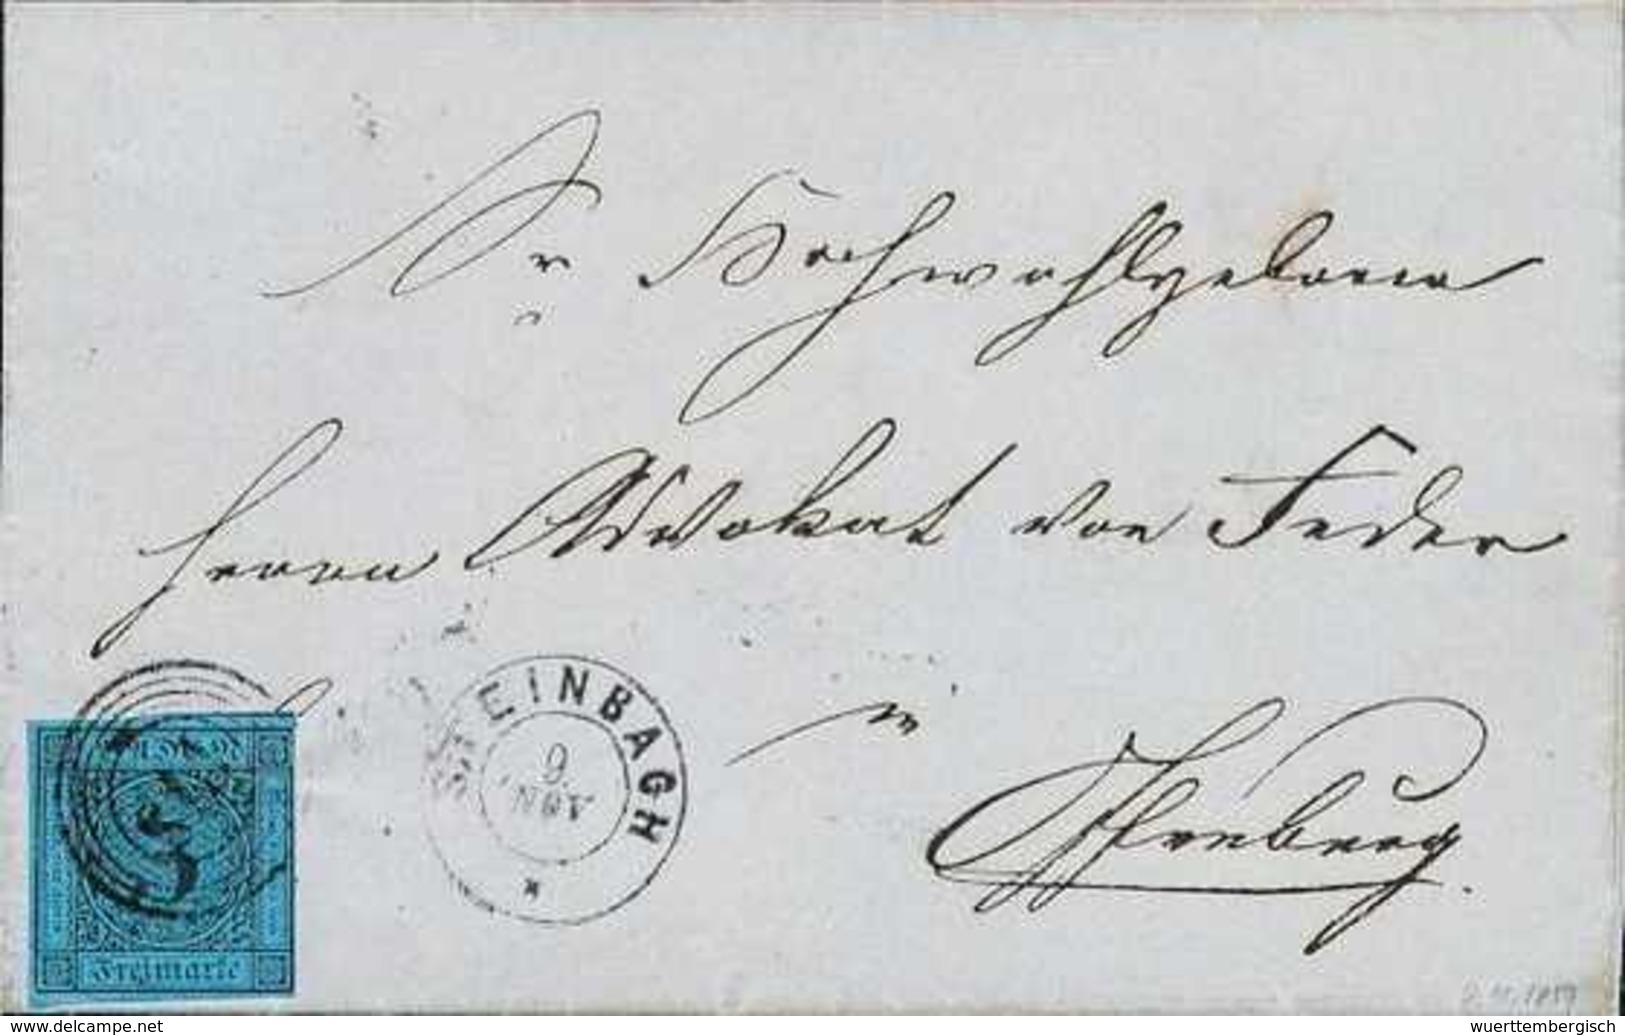 Sr Hochwohlgeboren
Herrn Advokat von Feder
in
Offenburg.
STEINBACH
9
NOV
*
BADEN
Freimarke
www.delcampe.net
wuerttembergisch